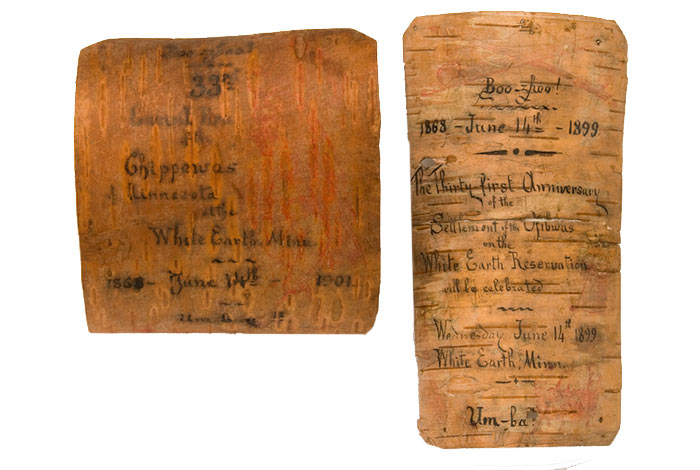 33rd
Chippewas
of Minnesota
at the
White Earth, Minn.
1868 - June 14th - 1901
Boo-zhoo!
1868 - June 14th - 1899
The Thirty-first Anniversary
of the
Settlement of the Ojibwas
on the
White Earth Reservation
will be celebrated
Wednesday June 14th 1899
White Earth, Minn.
Um-ba!